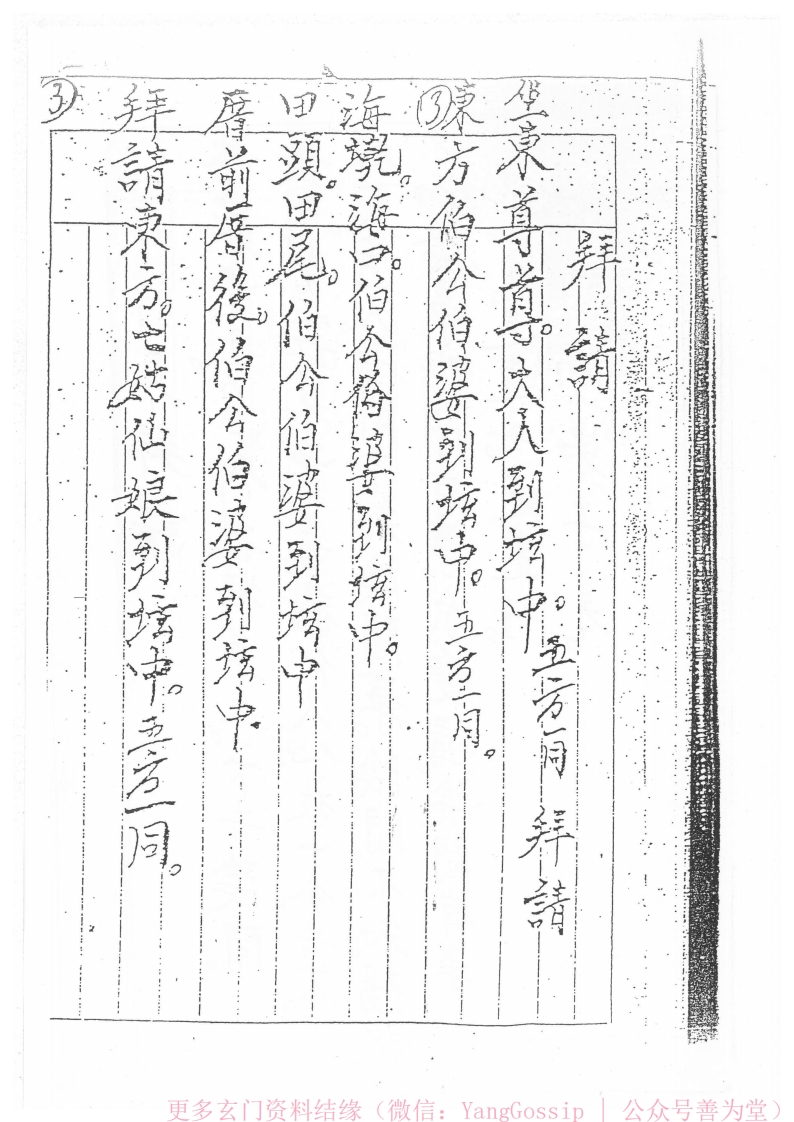 拜請
坐東尊尊。大人到壇中。五方一同 拜請
③東方伯公伯婆到壇中。五方一同。
海墘。海口。伯公伯婆到壇中。
田頭。田尾。伯公伯婆到壇中
厝前厝後。伯公伯婆到壇中。
拜請東方。七姑仙娘到壇中。五方一同。
③
更多玄门资料结缘（微信：YangGossip | 公众号善为堂）